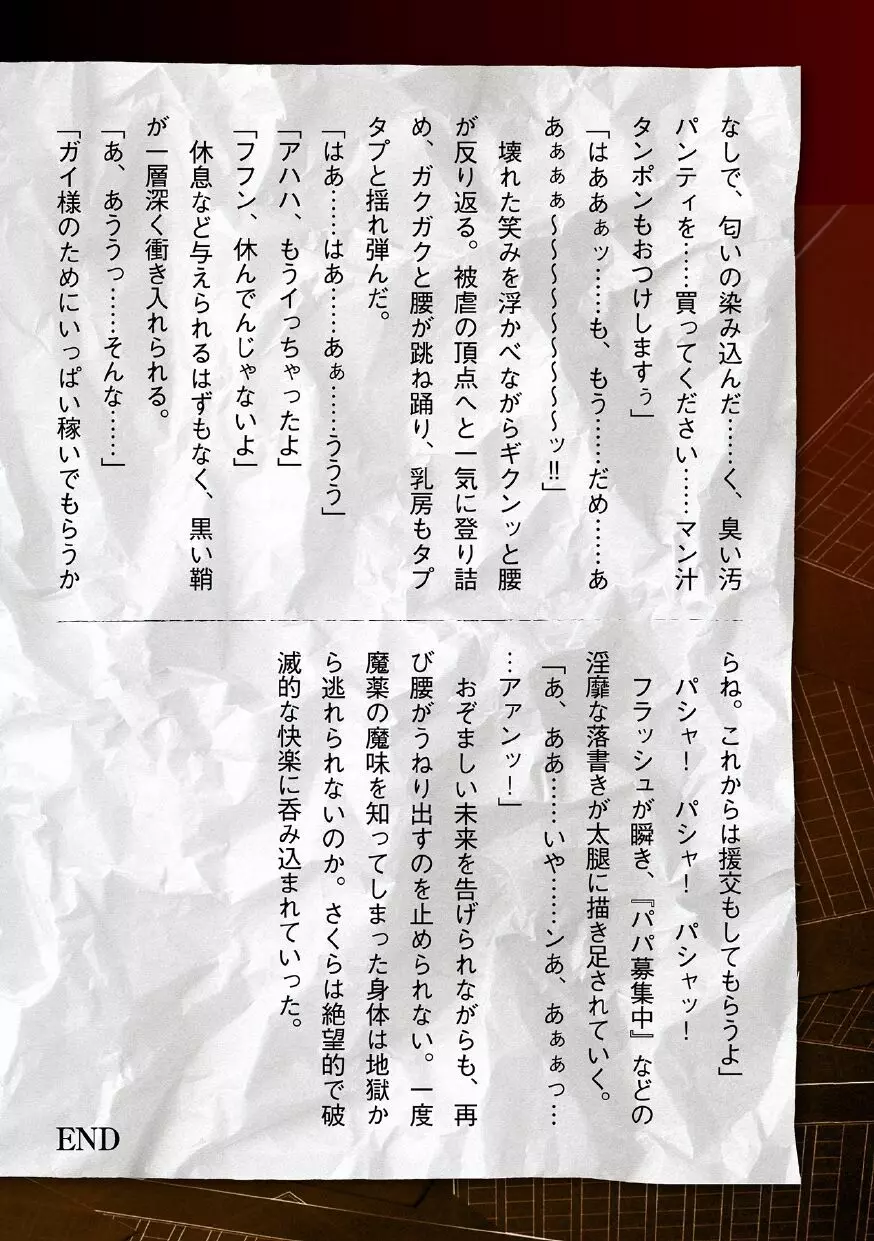 なしで、匂いの染み込んだ……く、臭い汚
パンティを……買ってください……マン汁
タンポンもおつけしますぅ」
「はああぁッ……も、もう……だめ……あ
あぁぁぁ～～～～～～～～～ッ!!」
壊れた笑みを浮かべながらギクンッと腰
が反り返る。被虐の頂点へと一気に登り詰
め、ガクガクと腰が跳ね踊り、乳房もタプ
タプと揺れ弾んだ。
「はあ……はあ……あぁ……ううう」
「アハハ、もうイっちゃったよ」
「フフン、休んでんじゃないよ」
休息など与えられるはずもなく、黒い鞘
が一層深く衝き入れられる。
「あ、あううっ……そんな……」
「ガイ様のためにいっぱい稼いでもらうか
らね。これからは援交もしてもらうよ」
パシャ！　パシャ！　パシャッ！
フラッシュが瞬き、『パパ募集中』などの
淫靡な落書きが太腿に描き足されていく。
「あ、ああ……いや……ンあ、あぁぁっ…
…アァンッ！」
おぞましい未来を告げられながらも、再
び腰がうねり出すのを止められない。一度
魔薬の魔味を知ってしまった身体は地獄か
ら逃れられないのか。さくらは絶望的で破
滅的な快楽に呑み込まれていった。
END